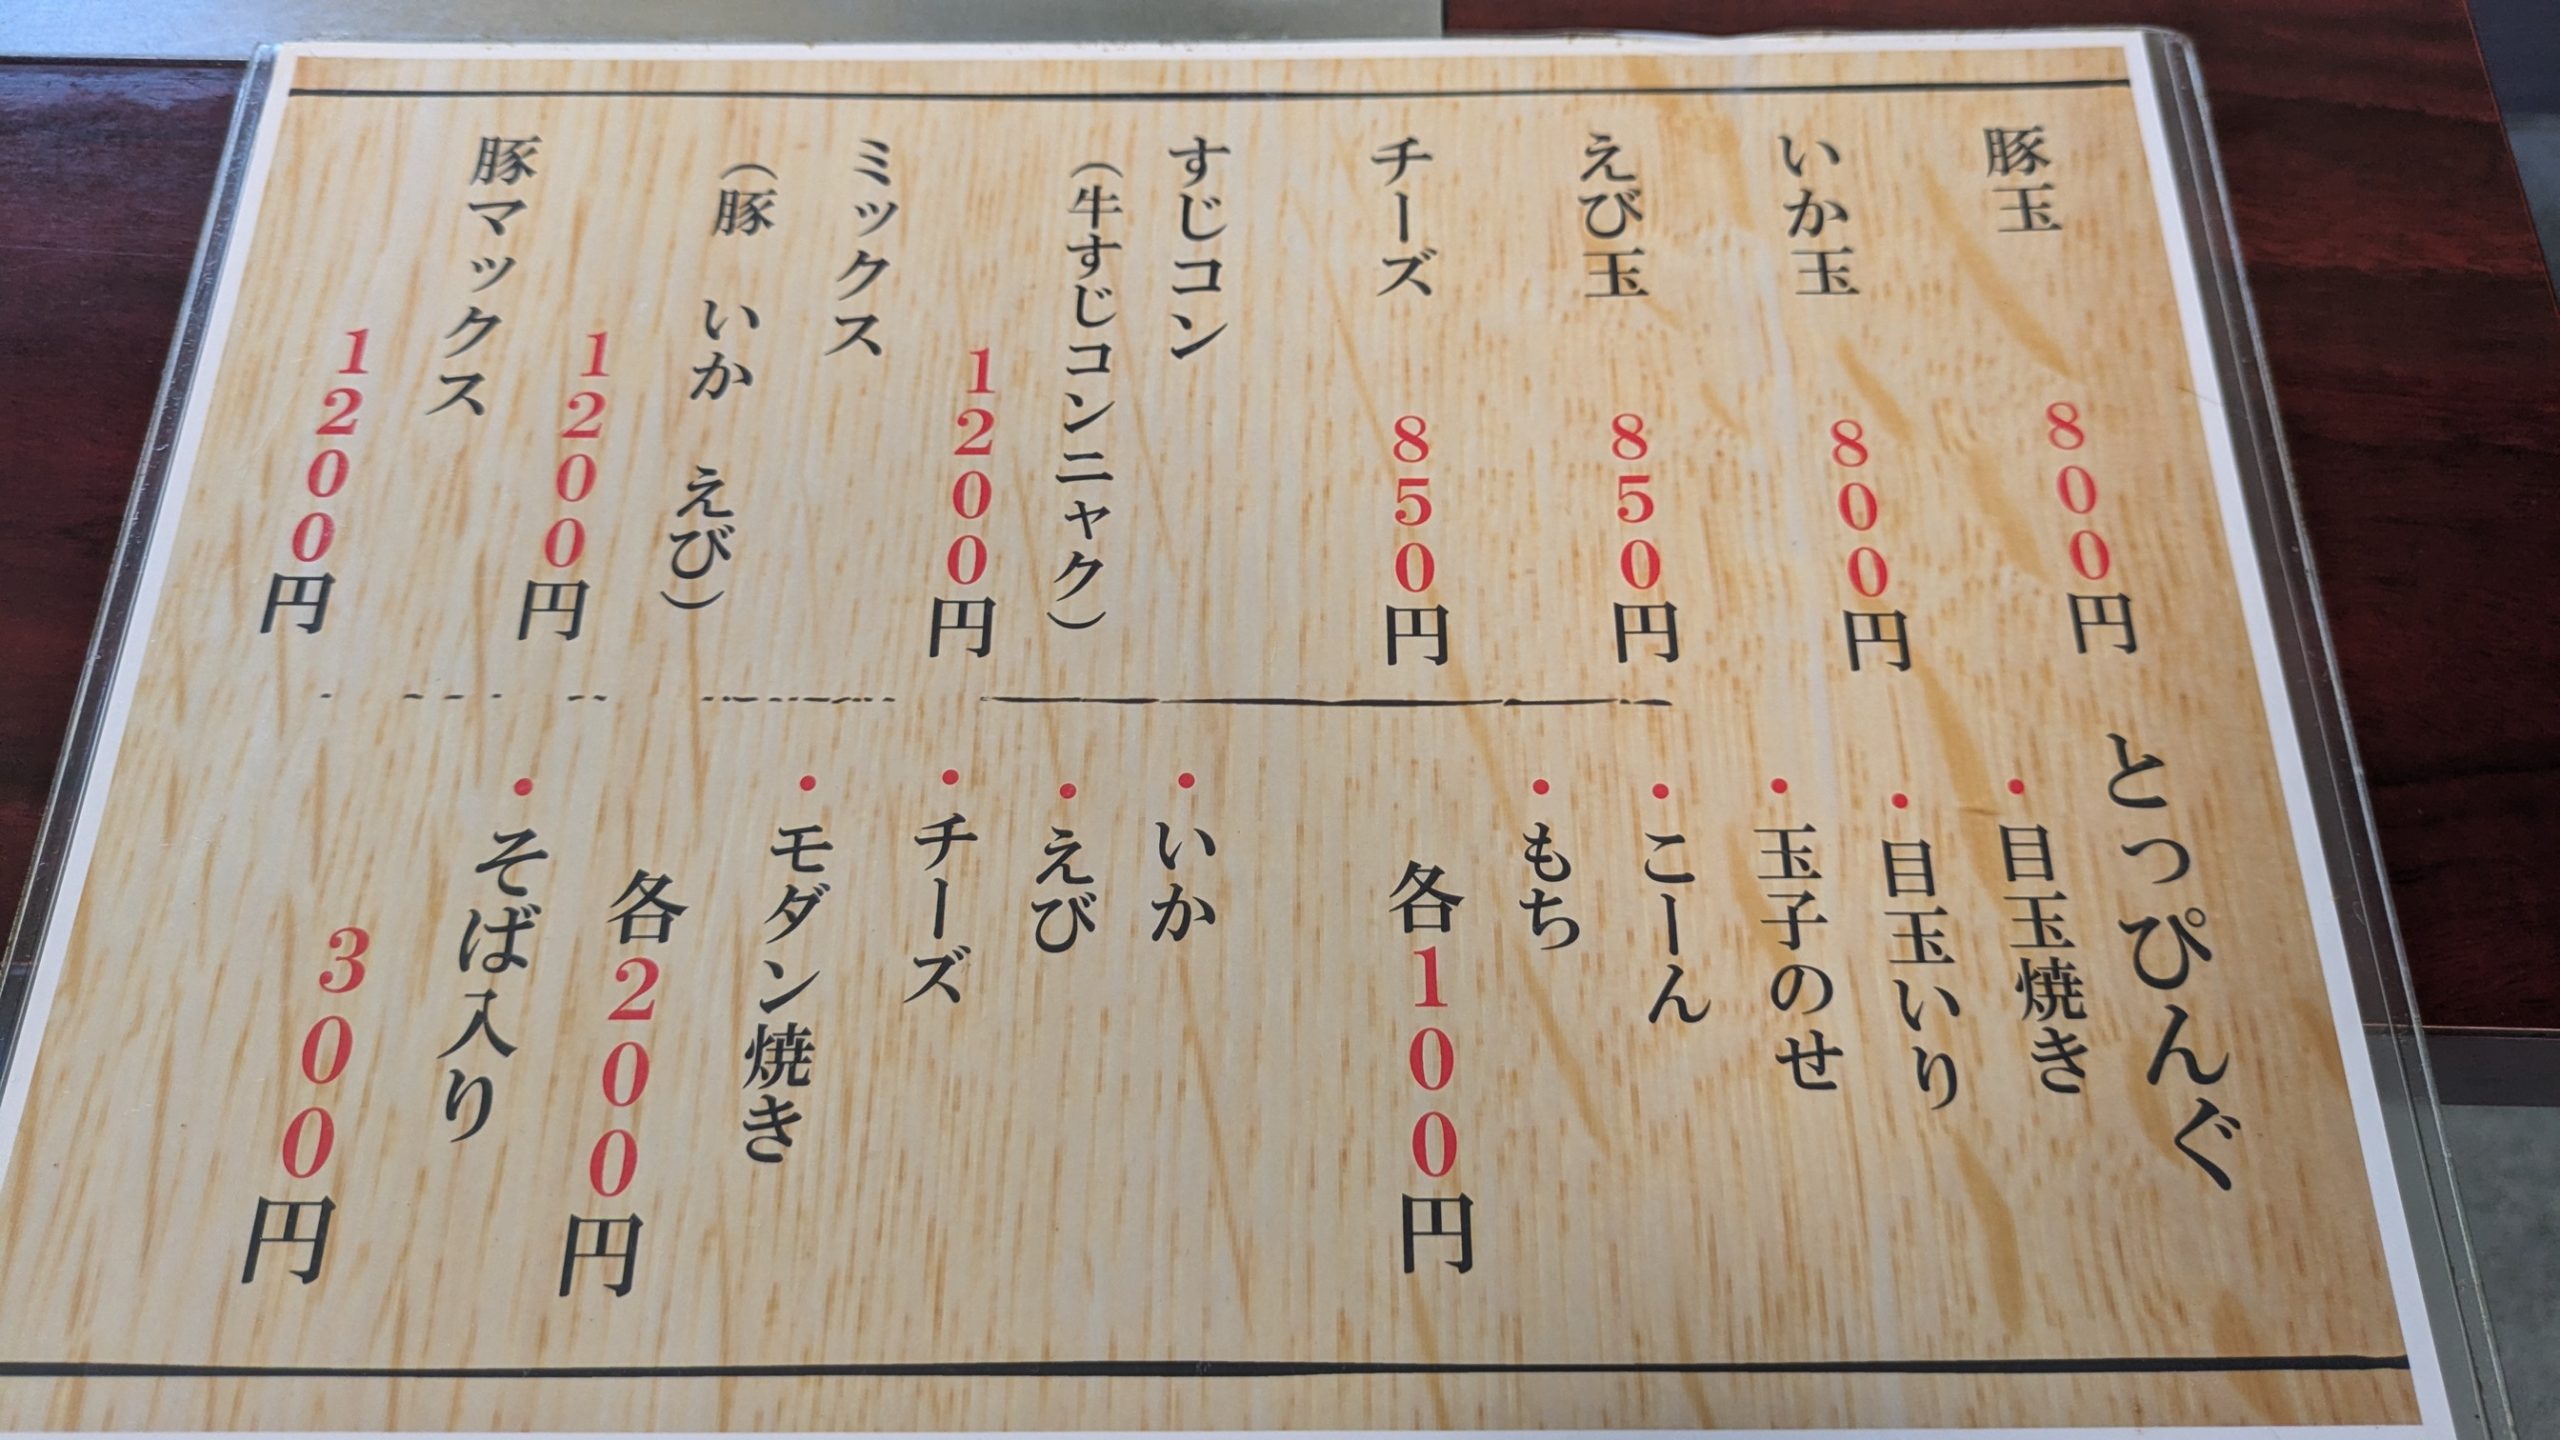 豚玉
800円
いか玉
800円
えび玉
850円
チーズ
850円
すじコン
(牛すじコンニャク)
1200円
ミックス
(豚 いか えび)
1200円
豚マックス
1200円
とっぴんぐ
・目玉焼き
・目玉いり
・玉子のせ
・こーん
・もち
各100円
・いか
・えび
・チーズ
・モダン焼き
各200円
・そば入り
300円